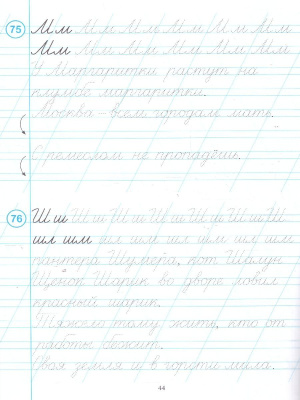 75 Мм Мм Мм Мм Мм Мм Мм
Мм Мм Мм Мм Мм Мм
У Маргаритки растут на
клумбе маргаритки.
Москва – всем городам мать.
С ремеслом не пропадёшь.
76 Ш ш Ш ш Ш ш Ш ш Ш ш Ш ш Ш
шл шм шл шм шл шм шл шм
пантера Шумера, кот Шалун
Щенок Шарик во дворе ловил
красный шарик.
Тяжело тому жить, кто от
работы бежит.
Своя земля и в горсти мила.
44